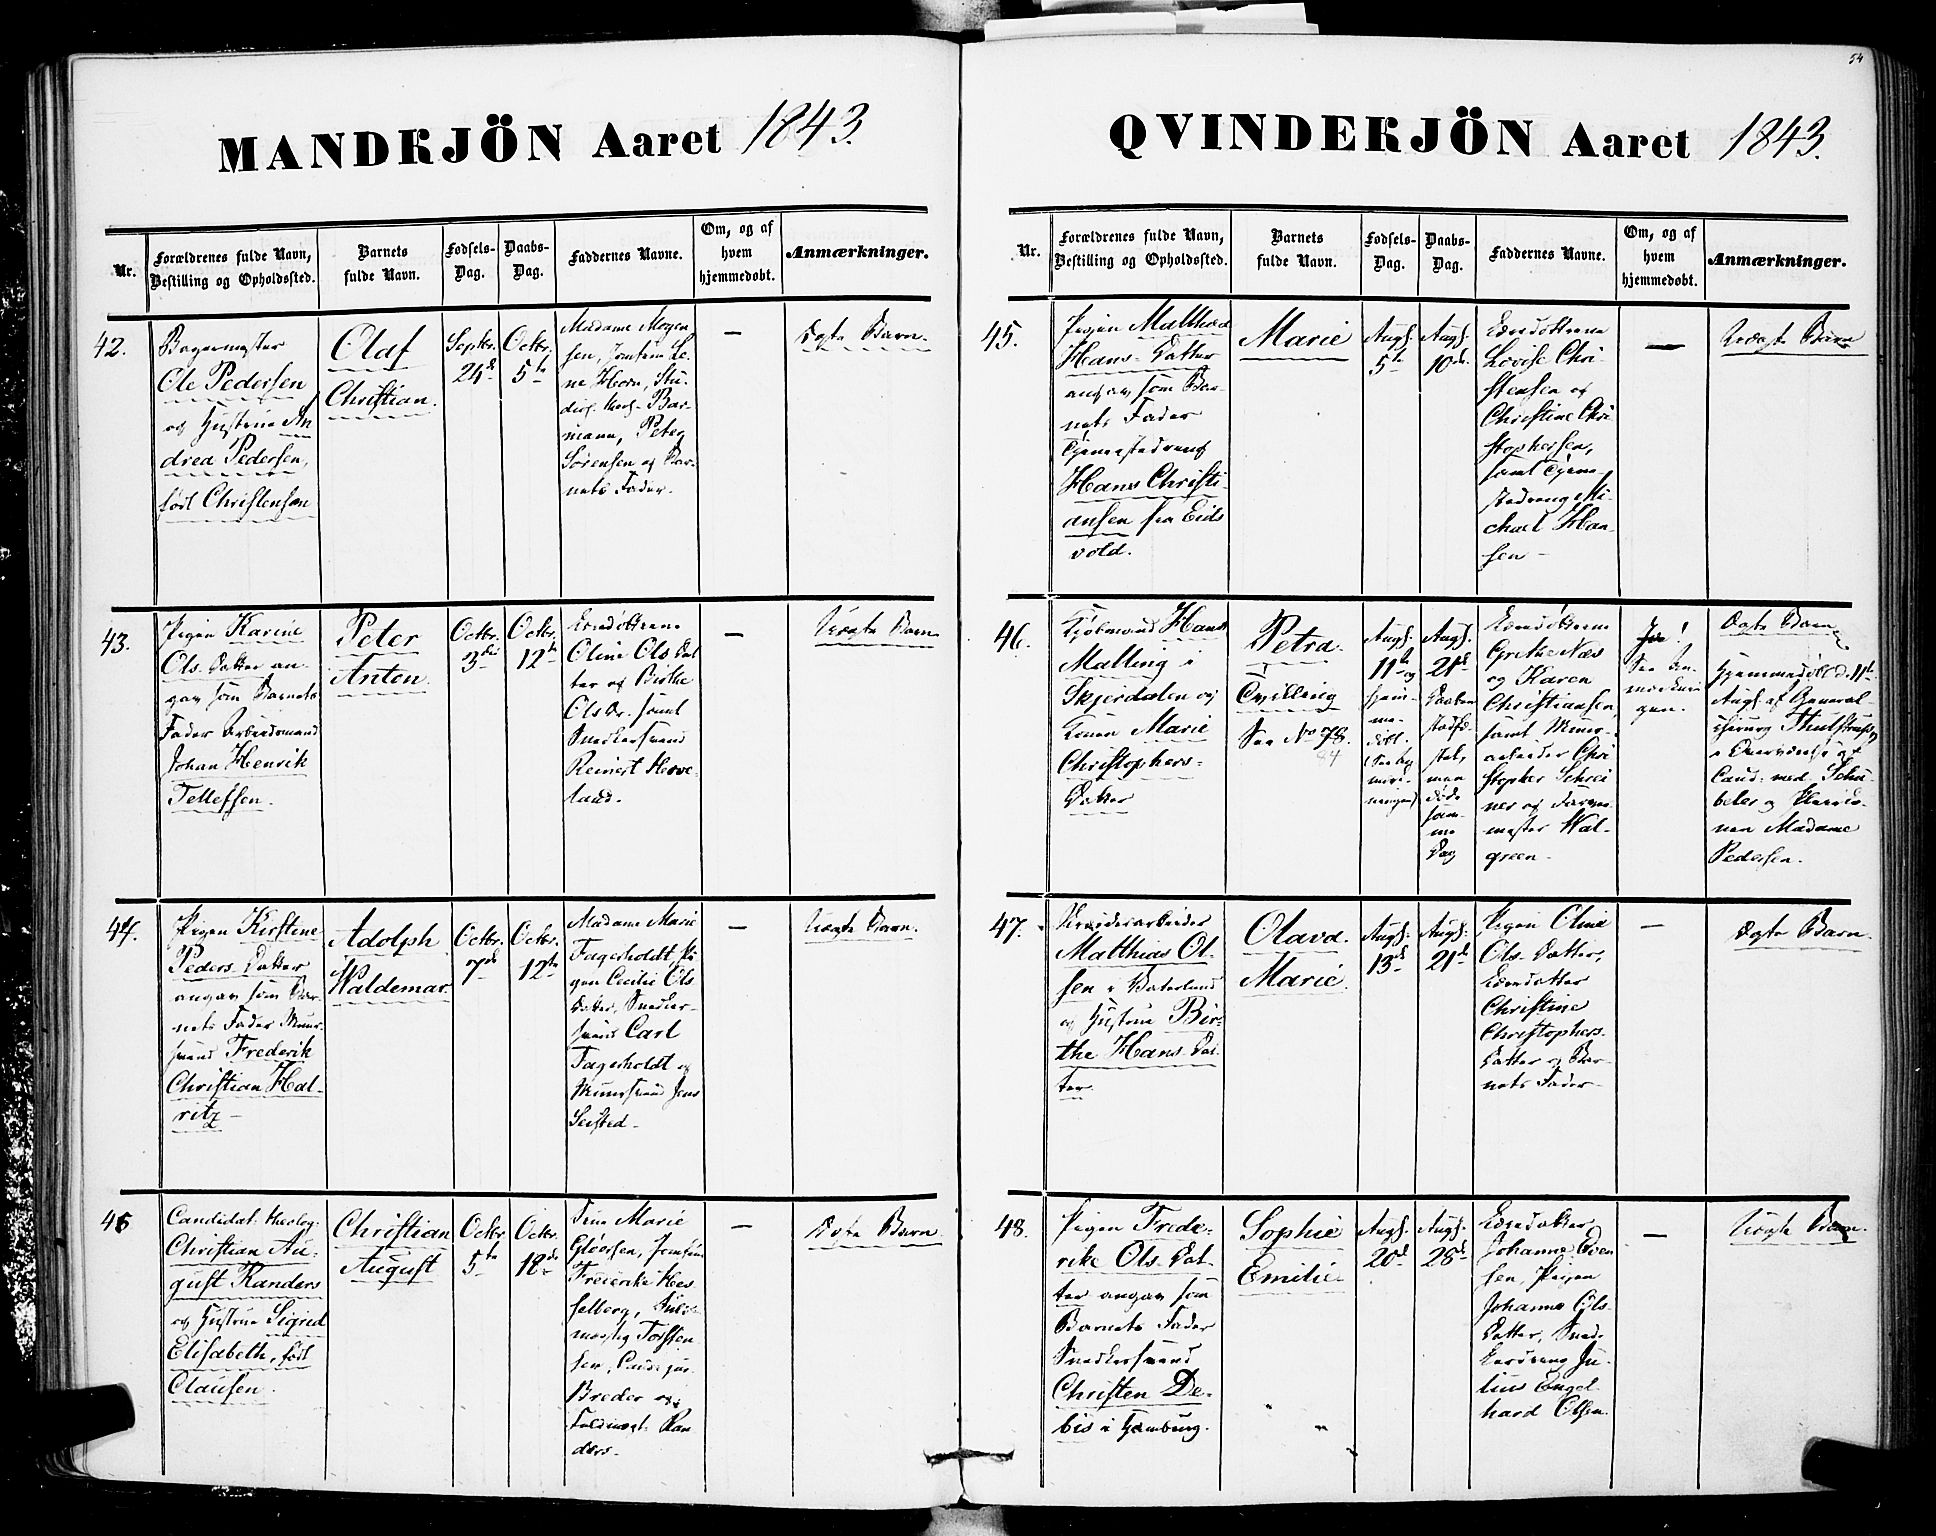 54
MANDKJÖN Aaret 1843.
Nr.
Forældrenes fulde Navn,
Bestilling og Opholdssted.
Barnets
fulde Navn.
Fødsels-
Dag.
Daabs-
Dag.
Faddernes Navne.
Om, og af
hvem
hjemmedøbt.
Anmærkninger.
42.
Bagermester
Ole Pedersen
og Hustrue An
drea Pedersen,
født Christensen
Olaf
Christian.
Septbr.
24de
Octbr.
5te
Madame Mogen
sen, Jomfrue Le-
ne Horn, Stu-
Bar-
mann, Peter
Sørensen og Bar-
nets Fader.
—
Ægte Barn.
43.
Pigen Karine
Ols. Datter an-
gav som Barnets
Fader Arbeidsmand
Johan Henrik
Tellefsen.
Peter
Anton.
Octbr.
3die
Octbr.
12te
Eensdøttrene
Oline Ols Dat
ter og Birthe
Ols Dr. samt
Snedkersvend
Reinert Herve
land.
—
Uægte Barn
44.
Pigen Kirstine
Peders. Datter
angav som Bar-
nets Fader Muur-
svend Frederik
Christian Hal-
ritz —
Adolph
Waldemar
Octbr.
7de
Octbr.
12te
Madame Marie
Fagerholdt, Pi-
gen Cecilie Ols
Datter, Snedker-
svend Carl
Fagerholdt og
Muursvend Jens
Seisted —
—
Uægte Barn.
45
Candidat: theolog:
Christian Au-
gust Randers
og Hustrue Sigrid
Elisabeth, født
Clausen.
Christian
August
Octbr.
5te
Octbr.
18de
Frue Marie
Gløersen, Jomfrue
Frederike Hes
selberg, Fuld-
mægtig Torsten
sen, Cand: jur:
Breder og
Fuldmægt: Ran
ders —
—
Ægte Barn.
QVINDEKJÖN Aaret 1843.
Nr.
Forældrenes fulde Navn,
Bestilling og Opholdssted.
Barnets
fulde Navn.
Fødsels-
Dag.
Daabs-
Dag.
Faddernes Navne.
Om, og af
hvem
hjemmedøbt.
Anmærkninger.
45.
Pigen Mathea
Hans- Datter
angav som Bar-
nets Fader
Tjenestedreng
Hans Christi-
ansen fra Eids
vold.
Marie
Augs.
5te
Augs.
10de
Lovise Chri-
stensen og
Christine Chri
stophersen,
samt Tjene-
stedreng Mi-
chael Han-
sen —
—
Uægte Barn
46.
Kjøbmand Hans
Malling i
Skjerdalen og
Konen Marie
Christophers-
Datter
Petra.
Tvilling
See No 78.
44
Augs.
11te og
hjem-
me-
døbt.
(See An
mærk-
ningen)
Augs.
21de
Daaben
stadfæ
stet,
men
døde
sam-
me
Dag
Grethe Næs
og Karen
Christiansen,
samt Muur-
arbeider Chri
stopher Schrei
ner og Farver-
mester Wal-
green —
Ja!
See An-
mærknin
gen.
Ægte Barn
Hjemmedøbt d. 11te
Augs. af General-
chirurg Thulstrup
i Overværelse af
Cand: med. Schu-
beler og Pleiers-
nen Madame
Pedersen.
47.
Matthias Ol-
sen i Vaterland
og Hustrue Bir-
the Hans Dat-
ter.
Olava.
Marie.
Augs.
13de
Augs.
21de
Pigen Oline
Ols. Datter,
Eensdatter
Christine
Christophers.
Datter og Bar-
nets Fader —
—
Ægte Barn.
48.
Pigen Frede-
rike Ols. Dat-
ter angav som
Barnets Fader
Snedkersvend
Christen De-
bis i Hamburg.
Sophie
Emilie
Augs.
20de
Augs.
28de
Eensdatter
Johanne Even
sen, Pigen
Johanne Ols-
Datter, Sned-
kerdreng Ju-
lius Engel-
hard Olsen.
—
Uægte Barn.